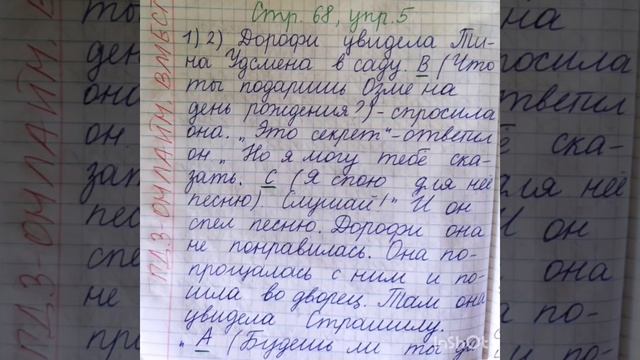 Стр. 68, упр. 5
1) 2) Дорофи увидела Ти-
на Удсмена в саду. В (Что
ты подаришь Озме на
день рождения?) - спросила
она. „Это секрет" - ответил
он „Но я могу тебе ска-
зать. С (Я спою для неё
песню) Слушай!" И он
спел песню. Дорофи она
не понравилась. Она по-
прощалась с ним и по-
шла во дворец. Там она
увидела Страшилу.
„ А (Будешь ли ты
ГДЗ-ОНЛАЙН. ВМЕСТ
InShot